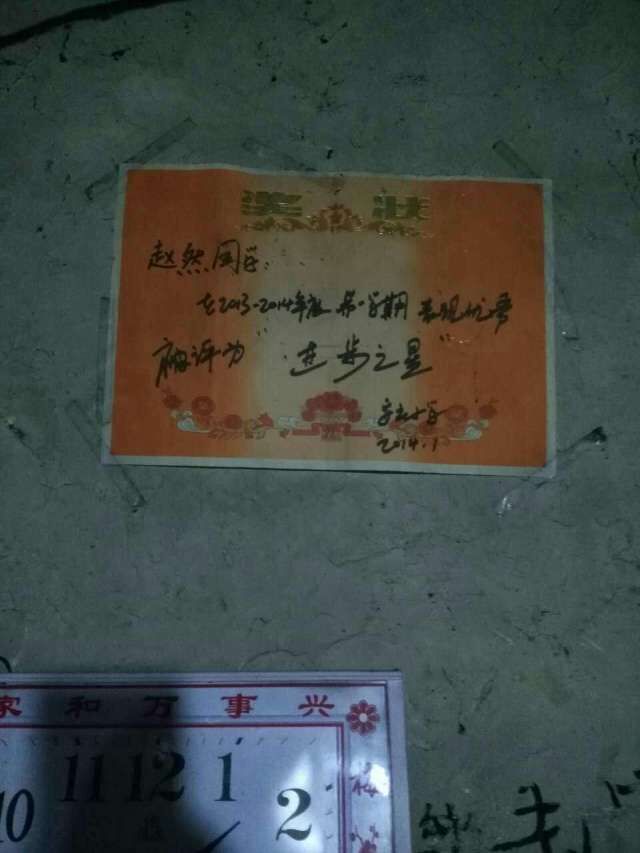 奖 状
赵然同学：
在2013-2014年度 第一学期 表现优秀
被评为“进步之星”
2014.1
家和万事兴
11 12 1
10 2